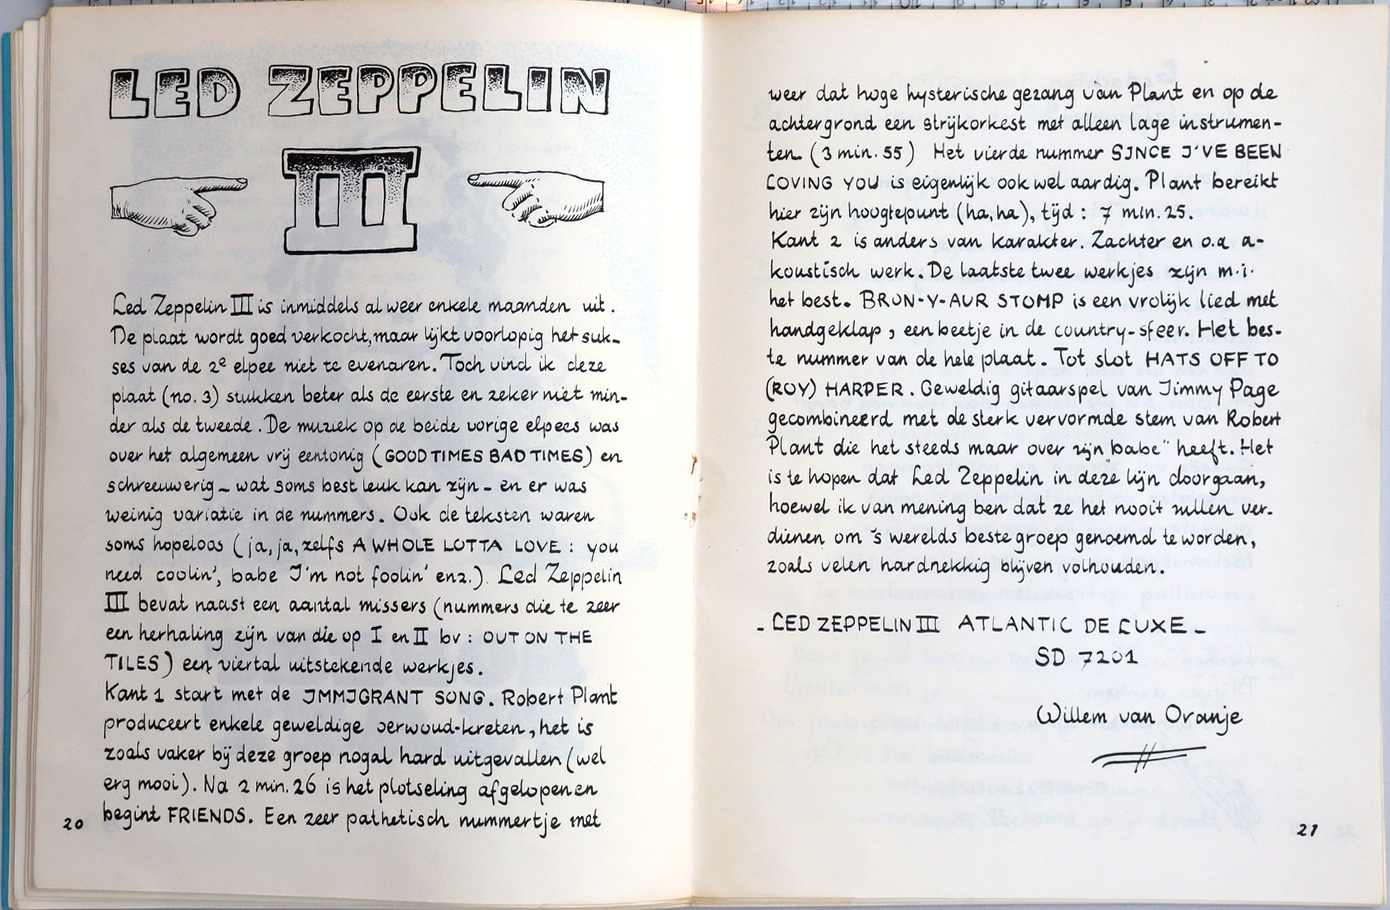 LED ZEPPELIN
III
Led Zeppelin III is inmiddels al weer enkele maanden uit.
De plaat wordt goed verkocht, maar lijkt voorlopig het suk-
ses van de 2e elpee niet te evenaren. Toch vind ik deze
plaat (no. 3) stukken beter als de eerste en zeker niet min-
der als de tweede. De muziek op de beide vorige elpees was
over het algemeen vrij eentonig (GOOD TIMES BAD TIMES) en
schreeuwerig - wat soms best leuk kan zijn - en er was
weinig variatie in de nummers. Ook de teksten waren
soms hopeloos (ja, ja, zelfs A WHOLE LOTTA LOVE: you
need coolin', babe I'm not foolin' enz.). Led Zeppelin
III bevat naast een aantal missers (nummers die te zeer
een herhaling zijn van die op I en II bv: OUT ON THE
TILES) een viertal uitstekende werkjes.
Kant 1 start met de IMMIGRANT SONG. Robert Plant
produceert enkele geweldige oerwoud-kreten, het is
zoals vaker bij deze groep nogal hard uitgevallen (wel
erg mooi). Na 2 min. 26 is het plotseling afgelopen en
begint FRIENDS. Een zeer pathetisch nummertje met
20
weer dat hoge hysterische gezang van Plant en op de
achtergrond een strijkorkest met alleen lage instrumen-
ten. (3 min. 55) Het vierde nummer SINCE I'VE BEEN
LOVING YOU is eigenlijk ook wel aardig. Plant bereikt
hier zijn hoogtepunt (ha, ha), tijd: 7 min. 25.
Kant 2 is anders van karakter. Zachter en o.a a-
koustisch werk. De laatste twee werkjes zijn m.i.
het best. BRON-Y-AUR STOMP is een vrolijk lied met
handgeklap, een beetje in de country-sfeer. Het bes-
te nummer van de hele plaat. Tot slot HATS OFF TO
(ROY) HARPER. Geweldig gitaarspel van Jimmy Page
gecombineerd met de sterk vervormde stem van Robert
Plant die het steeds maar over zijn "babe" heeft. Het
is te hopen dat Led Zeppelin in deze lijn doorgaan,
hoewel ik van mening ben dat ze het nooit zullen ver-
dienen om 's werelds beste groep genoemd te worden,
zoals velen hardnekkig blijven volhouden.
- LED ZEPPELIN III ATLANTIC DE LUXE -
SD 7201
Willem van Oranje
21